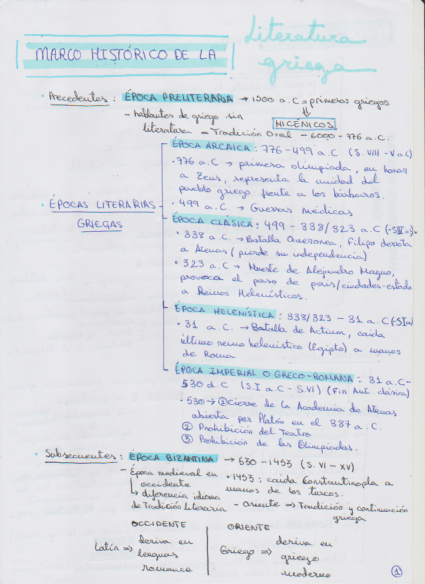 Literatura
MARCO HISTÓRICO DE LA
griega
· Precedentes: ÉPOCA PRELITERARIA → 1200 a.C = primeros griegos
⇓
MICÉNICOS
- hablantes de griego sin
literatura - Tradición Oral - 6000-776 a.C.
ÉPOCA ARCAICA: 776-499 a.C (S. VIII - V a.C)
· 776 a.C → primera olimpiada, en honor
a Zeus, representa la unidad del
pueblo griego frente a los bárbaros.
· 499 a.C → Guerras médicas
· ÉPOCAS LITERARIAS
GRIEGAS
ÉPOCA CLÁSICA: 499 - 338/323 a.C
· 338 a.C. → Batalla Queronea, Filipo derrota
a Atenas (pierde su independencia)
· 323 a.C → Muerte de Alejandro Magno,
provoca el paso de polis/ciudades-estado
a Reinos Helenísticos.
ÉPOCA HELENÍSTICA: 338/323 - 31 a.C
· 31 a.C. → Batalla de Actium, caída
último reino helenístico (Egipto) a manos
de Roma
ÉPOCA IMPERIAL O GRECO-ROMANA: 31 a.C-
530 d.C (S.I a.C - S.VI) (Fin Ant. clásica)
· 530 → ① Cierre de la Academia de Atenas
abierta por Platón en el 387 a.C.
② Prohibición del Teatro
③ Prohibición de las Olimpiadas.
· Subsecuentes: ÉPOCA BIZANTINA → 530-1453 (S. VI - XV)
- Época medieval en
occidente
· 1453: caída Constantinopla a
manos de los turcos.
↳ diferencia idioma
de Tradición literaria - Oriente → Tradición y continuación
griega
OCCIDENTE ORIENTE
Latín ⇒ deriva en
lenguas
romance
Griego ⇒ deriva en
griego
moderno
①